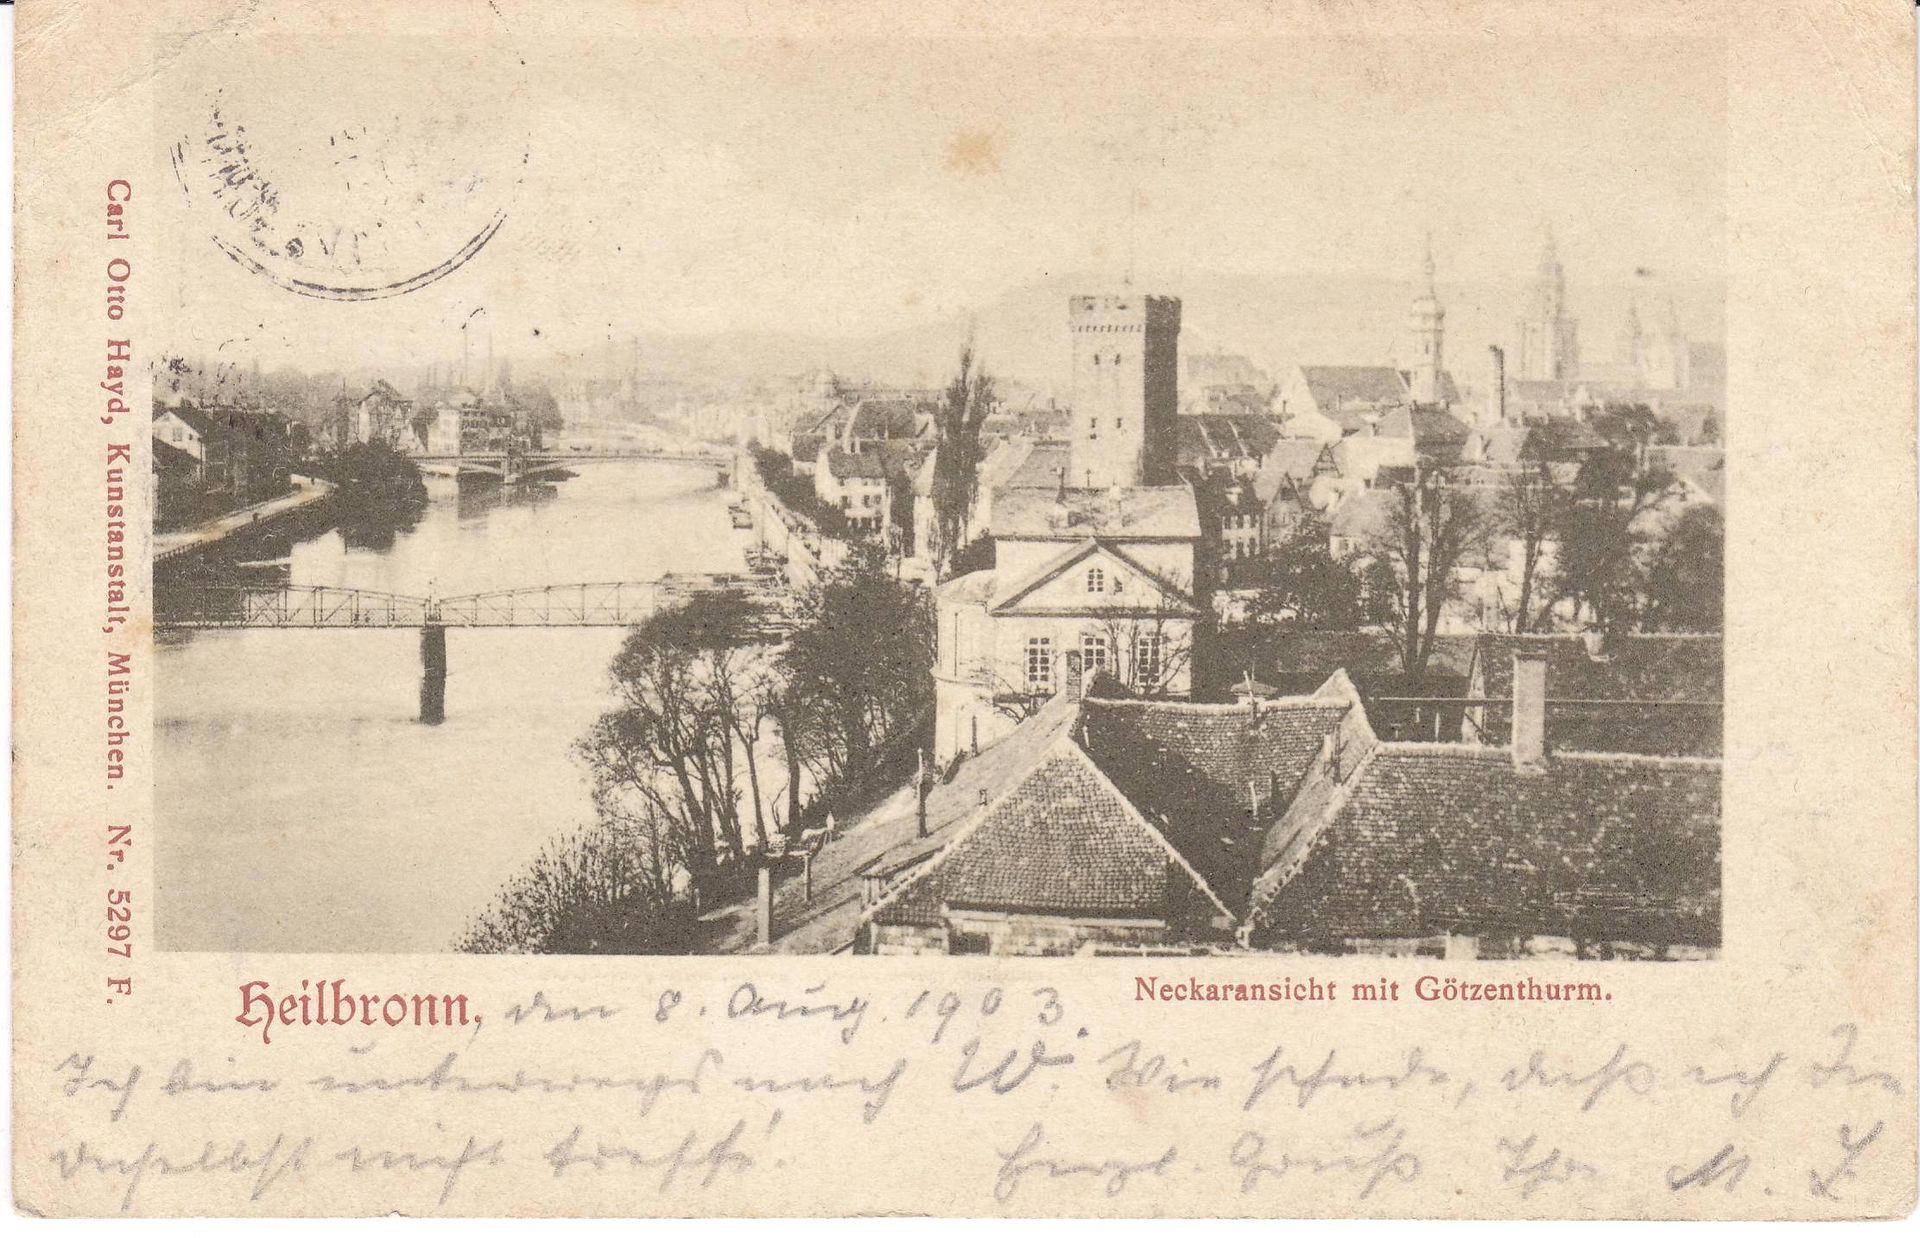 Carl Otto Hayd, Kunstanstalt, München. Nr. 5297 F.
Heilbronn, den 8. Aug. 1903.
Neckaransicht mit Götzenthurm.
Ich bin unterwegs nach W. Wie schade, daß ich Sie
daselbst nicht treffe! Herzl. Gruß Ihr M.